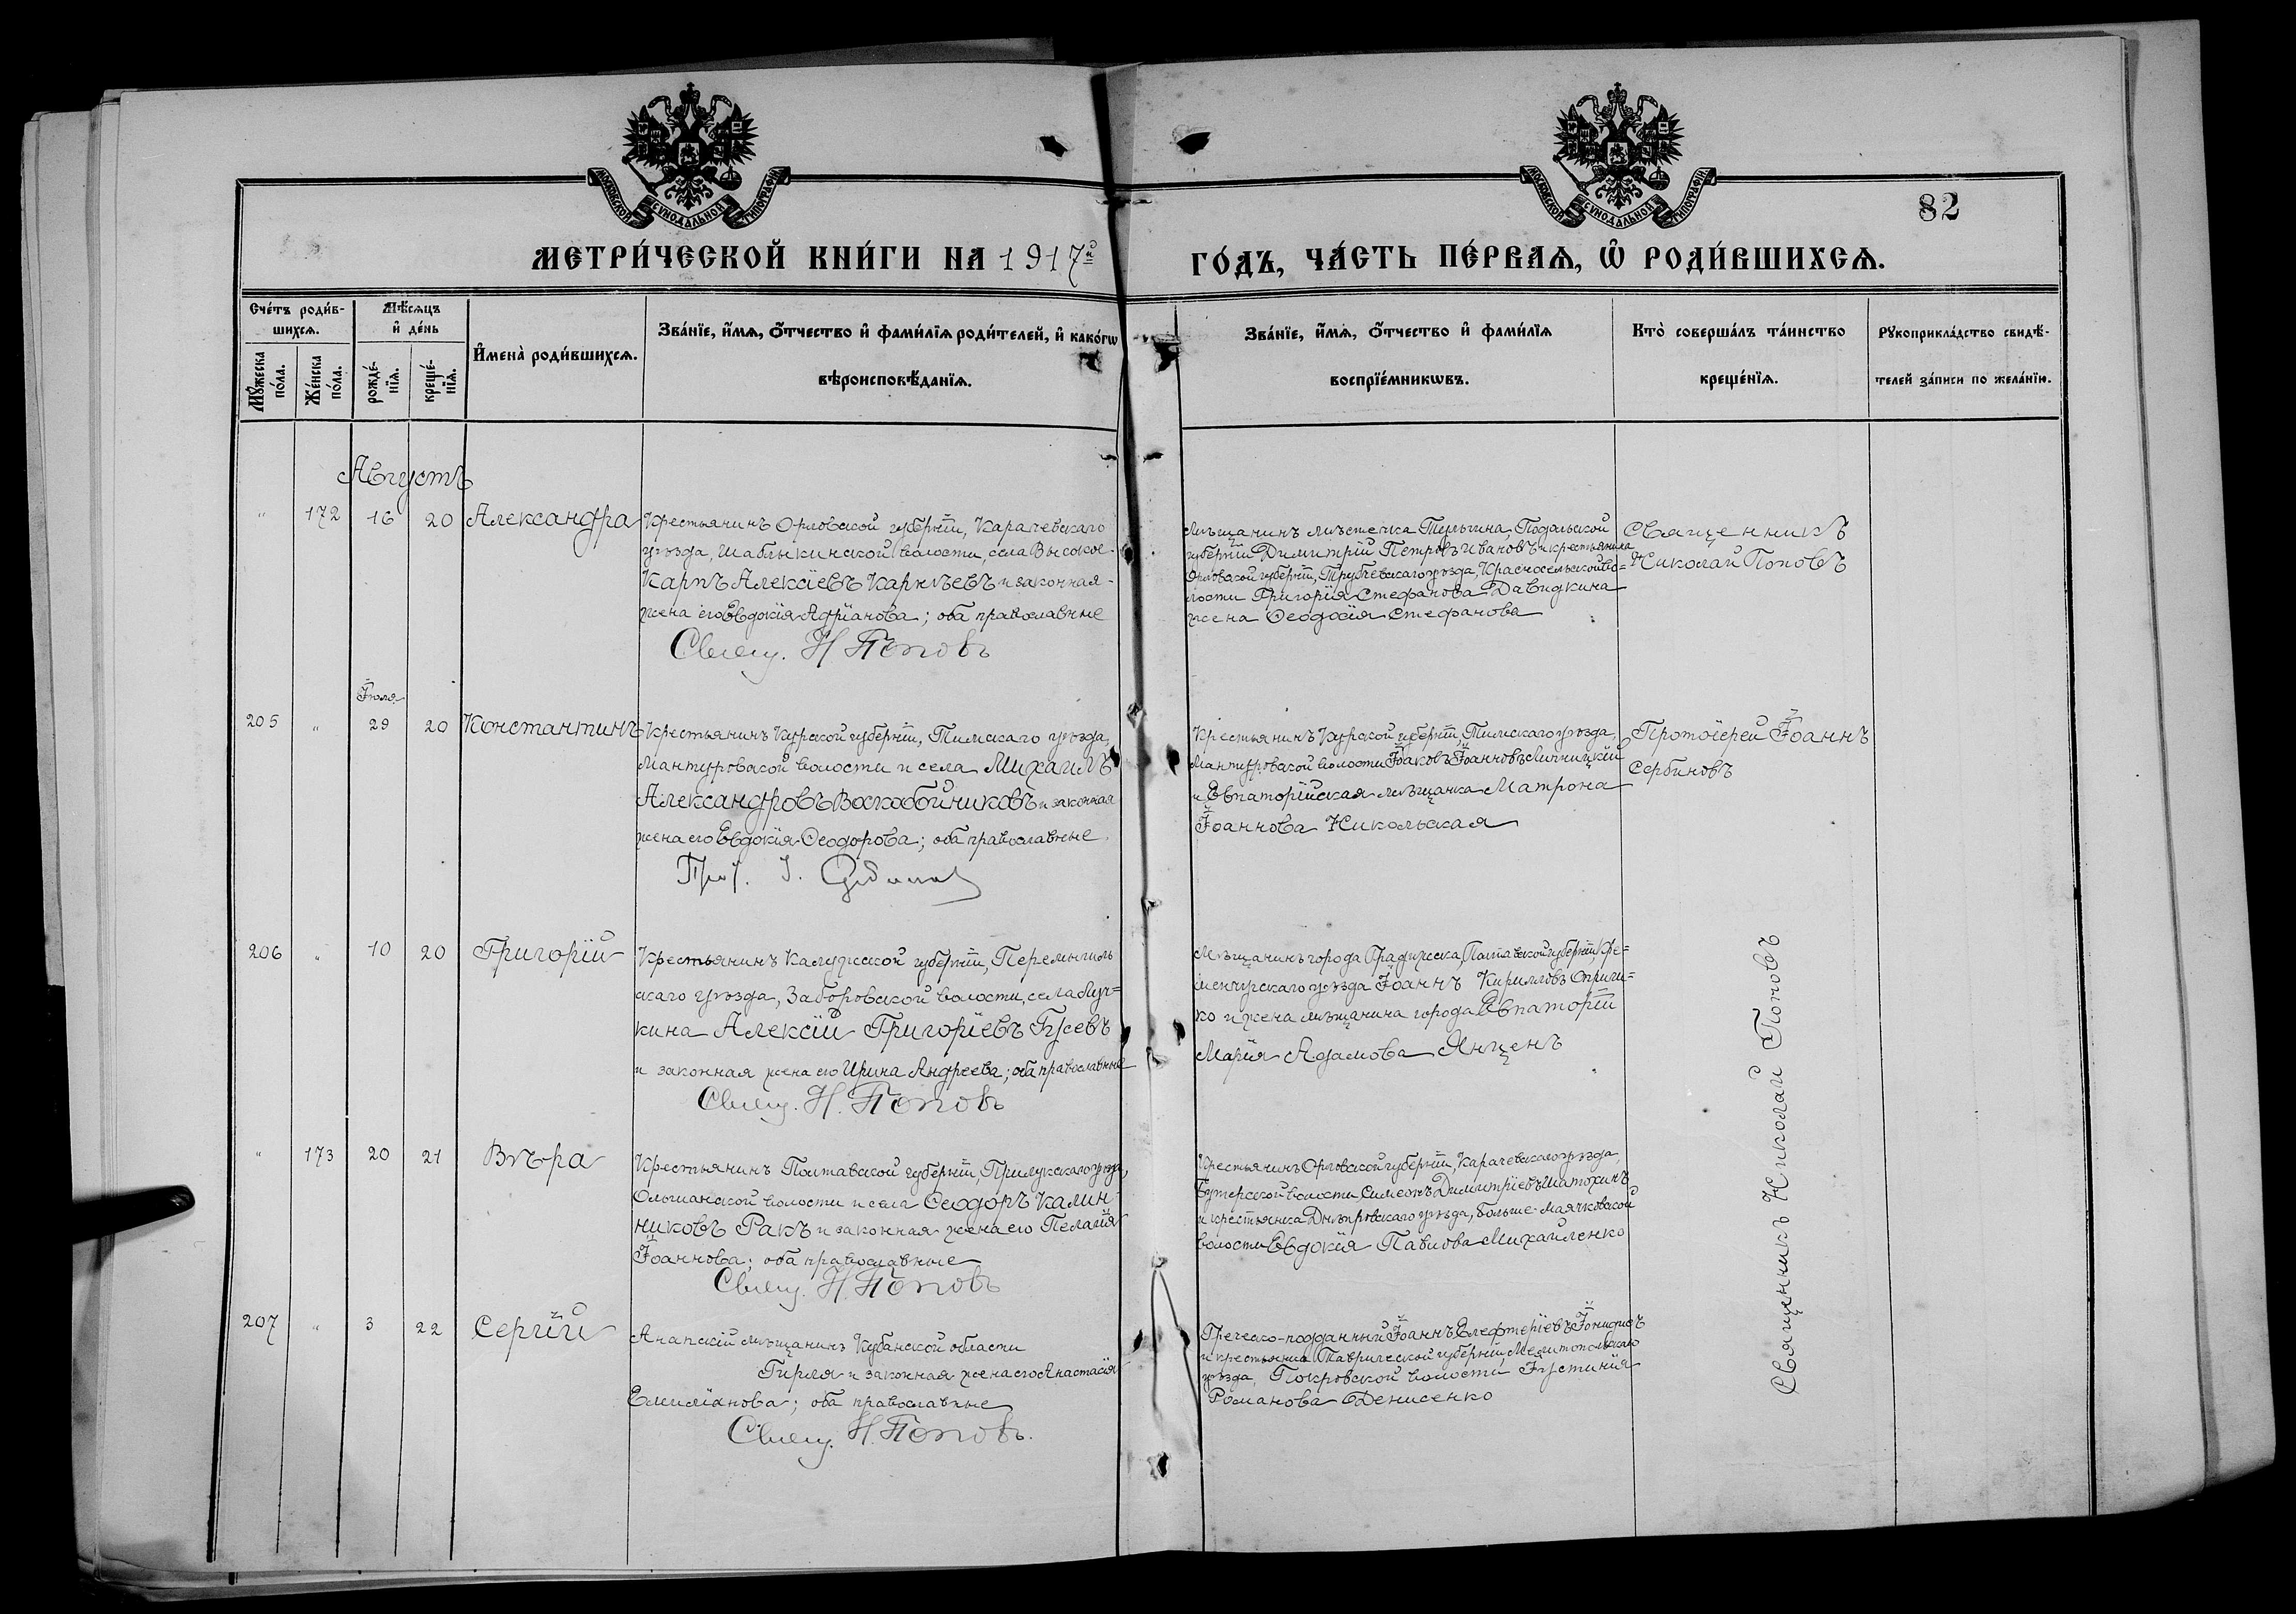 МОСКОВСКОЙ СѴНОДАЛЬНОЙ ТИПОГРАФІИ
МОСКОВСКОЙ СѴНОДАЛЬНОЙ ТИПОГРАФІИ
82
МЕТРИ́ЧЕСКОЙ КНИ́ГИ НА 1917й
ГО́ДЪ, ЧА́СТЬ ПЕ́РВАѦ, Ѽ РОДИ́ВШИХСѦ.
Сче́тъ роди́в-
шихсѧ.
Мꙋ́жеска по́ла.
Же́нска по́ла.
Мѣ́сѧцъ
и҆ де́нь
рожде́-
нїѧ.
креще́-
нїѧ.
И҆мена̀ роди́вшихсѧ.
Зва́нїе, и҆́мѧ, ѻ҆́тчество и҆ фами́лїѧ роди́телей, и҆ како́гѡ
вѣроисповѣ́данїѧ.
Зва́нїе, и҆́мѧ, ѻ҆́тчество и҆ фами́лїѧ
воспрїе́мникѡвъ.
Кто̀ соверша́лъ та́инство
креще́нїѧ.
Рꙋкоприкла́дство свидѣ́-
телей за́писи по жела́нїю.
Августъ
" 172 16 20 Александра
Крестьянинъ Орловской губерніи, Карачевскаго
уѣзда, Шаблыкинской волости, села Высокое-
Карпъ Алексіевъ Карпѣевъ и законная
жена его Евдокія Адріанова; оба православные
Свящ. Н. Поповъ
Мѣщанинъ мѣстечка Тульчина, Подольской
губерніи Димитрій Петровъ Ивановъ и крестьянина
Орловской губерніи, Трубчевскаго уѣзда, Красносельской во=
лости Григорія Стефанова Давидкина
жена Ѳеодосія Стефанова
Священникъ
Николай Поповъ
Іюля
205 " 29 20 Константинъ
Крестьянинъ Курской губерніи, Тимскаго уѣзда,
Мантуровской волости и села Михаилъ
Александровъ Воскобойниковъ и законная
жена его Евдокія Ѳеодорова; оба православные.
Прот. І. Сербиновъ
Крестьянинъ Курской губерніи, Тимскаго уѣзда,
Мантуровской волости Іаковъ Іоанновъ
и Евпаторійская мѣщанка Матрона
Іоаннова Никольская
Протоіерей Іоаннъ
Сербиновъ
206 " 10 20 Григорій
Крестьянинъ Калужской губерніи, Перемышль
скаго уѣзда, Заборовской волости, села Луч=
кина Алексій Григоріевъ Гусевъ
и законная жена его Ирина Андреева; оба православные
Свящ. Н. Поповъ
Мѣщанинъ города Градижска, Полтавской губерніи, Кре=
менчугскаго уѣзда Іоаннъ Кирилловъ
ко и жена мѣщанина города Евпаторіи
Марія Адамова Янценъ
" 173 20 21 Вѣра
Крестьянинъ Полтавской губерніи, Прилукскаго уѣзда,
Ольшанской волости и села Ѳеодоръ Калин-
никовъ Ракъ и законная жена его Пелагія
Іоаннова; оба православные
Свящ. Н. Поповъ
Крестьянинъ Орловской губерніи, Карачевскаго уѣзда,
Бутерской волости, Симеонъ Димитріевъ Шатохинъ
и крестьянка Днѣпровскаго уѣзда, Больше-Маячковской
волости Евдокія Павлова Михайленко
207 " 3 22 Сергій
Анапскій мѣщанинъ Кубанской области
Гирля и законная жена его Анастасія
Емиліанова; оба православные
Свящ. Н. Поповъ.
Греческо-подданный Іоаннъ Елефтеріевъ
и крестьянка Таврической губерніи, Мелитопольскаго
уѣзда, Покровской волости Іустинія
Романова Денисенко
Священникъ Николай Поповъ